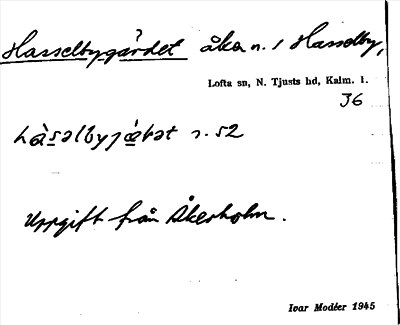 Hasselbygärdet åker n. i Hasselby,
Lofta sn, N. Tjusts hd, Kalm. l.
36
s. 52
Uppgift från Åkerholm.
Ivar Modéer 1945